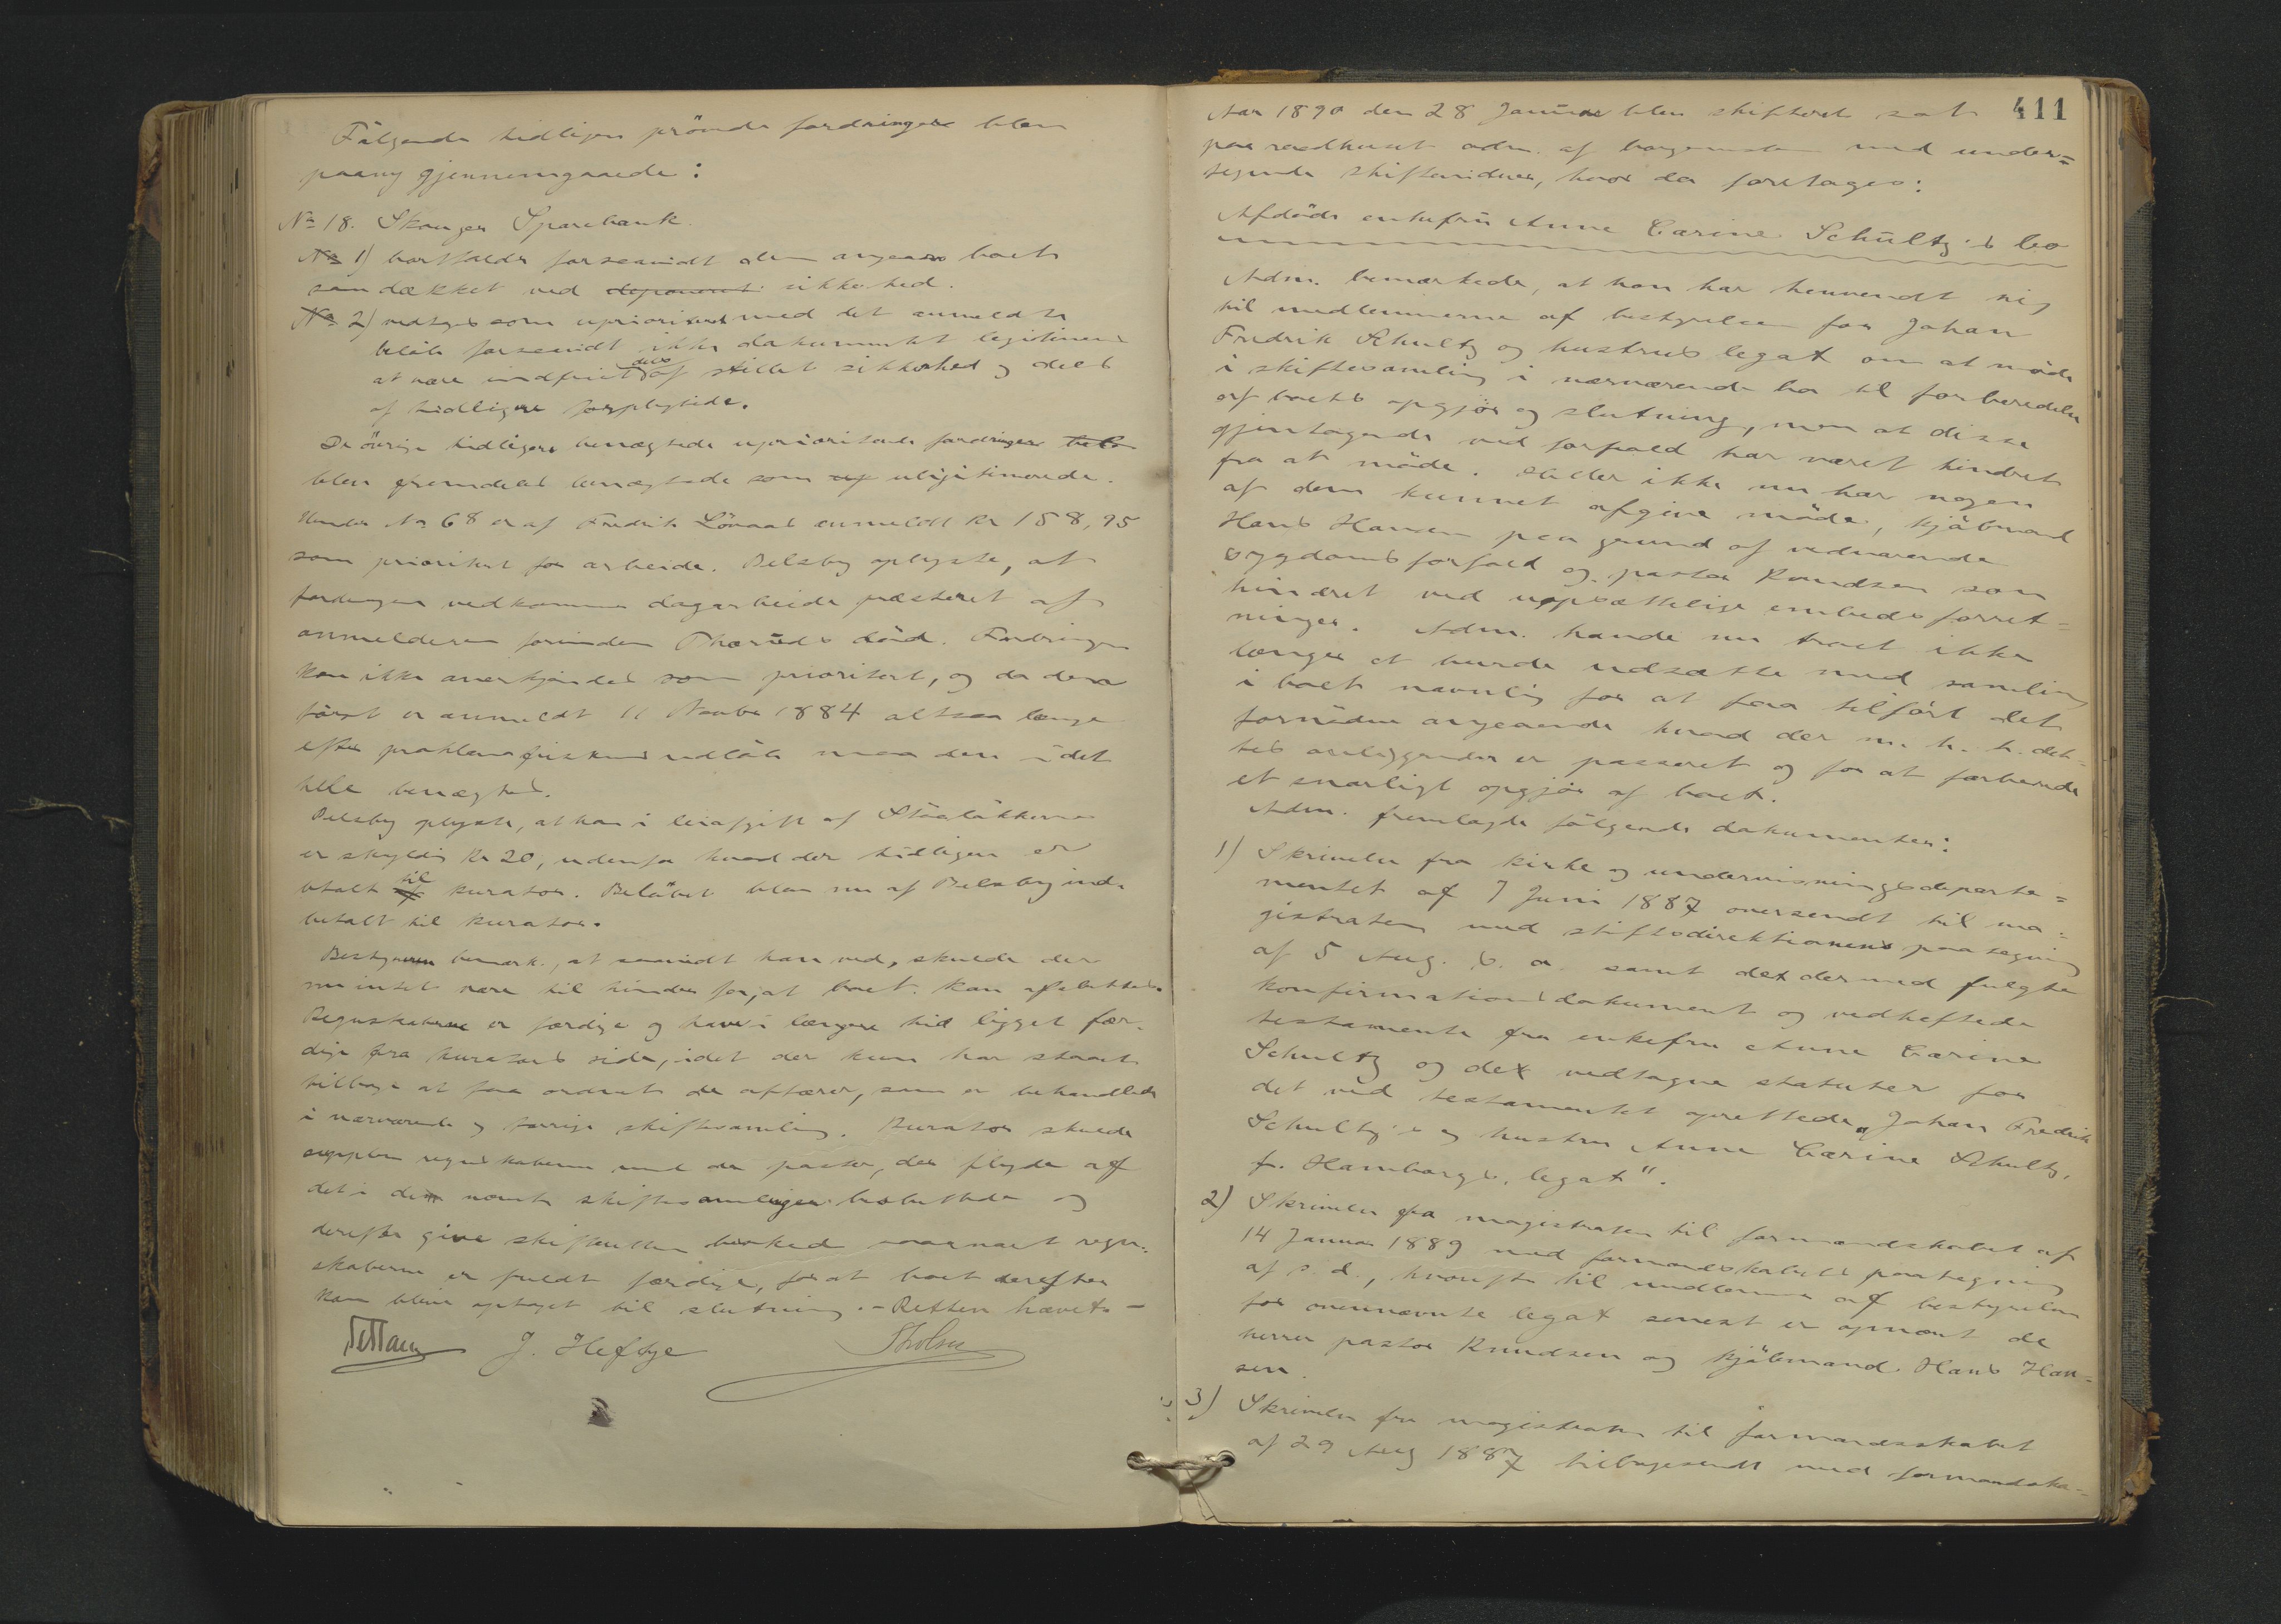 Følgende tidligere prøvede fordringer blev
paany gjennemgaaede:
No 18. Skouger Sparebank.
No 1) bortfalder forsaavidt den angaar boet
som dækket ved deponeret sikkerhed.
No 2) vedtages som uprioritert med det anmeldte
beløb forsaavidt ikke dokumentet legitimeres
at være indfriet dels af stillet sikkerhed og dels
af tidligere forpligtede.
De øvrige tidligere benægtede uprioriterte fordringer
blev fremdeles benægtede som ulegitimerede.
Under No 68 er af Fredrik Lønaas anmeldt Kr 158,95
som prioritert for arbeide. Belsby oplyste, at
fordringen vedkommer dagarbeide præsteret af
anmelderen forinden Thoruds død. Fordringen
kan ikke anerkjendes som prioritert, og da den
først er anmeldt 11 Novbr 1884 altsaa længe
efter proklamafristens udløb maa den i det
hele benægtes.
Belsby oplyste, at han i leieafgift af Støaløkkerne
er skyldig Kr 20, udenfor hvad der tidligere er
betalt til kurator. Beløbet blev nu af Belsby ind-
betalt til kurator.
Bestyreren bemærk., at saavidt han ved, skulde der
nu intet være til hinder for, at boet kan afsluttes.
Regnskaberne er færdige og have i længere tid ligget fær-
dige fra kurators side, idet der kun har staaet
tilbage at faa ordnet de affærer, som er behandlede
i nærværende og forrige skiftesamling. Kurator skulde
supplere regnskaberne med de poster, der flyder af
det i de nævnte skiftesamlinger besluttede og
derefter give skifteretten besked saasnart regn-
skaberne er fuldt færdige, for at boet derefter
kan blive optaget til slutning. - Retten hævet -
J. Heftye
411
Aar 1890 den 28 Januar blev skifteret sat
paa raadhuset adm. af borgermester med under=
tegnede skiftevidner, hvor da foretages:
Afdøde enkefru Anne Carine Schultz's bo
Adm. bemærkede, at han har henvendt sig
til medlemmerne af bestyrelsen for Johan
Fredrik Schultz og hustrus legat om at møde
i skiftesamling i nærværende bo til forberedelse
af boets opgjør og slutning, men at disse
gjentagende ved forfald har været hindret
fra at møde. Heller ikke nu har nogen
af dem kunnet afgive møde, kjøbmand
Hans Hansen paa grund af vedvarende
sygdomsforfald og pastor Knudsen som
hindret ved uopsættelige embedsforret=
ninger. Adm. havde nu troet ikke
længer at burde udsætte med samling
i boet navnlig for at faa tilført det
fornødne angaaende hvad der m. h. t. det-
tes anliggender er passeret og for at forberede
et snarligt opgjør af boet.
Adm. fremlagde følgende dokumenter:
1) Skrivelse fra kirke og undervisningsdeparte=
mentet af 7 Juni 1887 oversendt til ma=
gistraten med stiftsdirektionens paategning
af 5 Aug. s. a. samt det dermed fulgte
konfirmationsdokument og vedheftede
testamente fra enkefru Anne Carine
Schultz og det vedtagne statuter for
det ved testamentet oprettede „Johan Fredrik
Schultz's og hustru Anne Carine Schultz,
f. Hamborgs, legat".
2) Skrivelse fra magistraten til formandskabet af
14 Januar 1889 med formandskabets paategning
af s. d., hvorefter til medlemmer af bestyrelsen
for ovennævnte legat senest er opnævnt de
herrer pastor Knudsen og kjøbmand Hans Han=
sen.
3) Skrivelse fra magistraten til formandsskabet
af 29 Aug 1887 tilbagesendt med formandska=